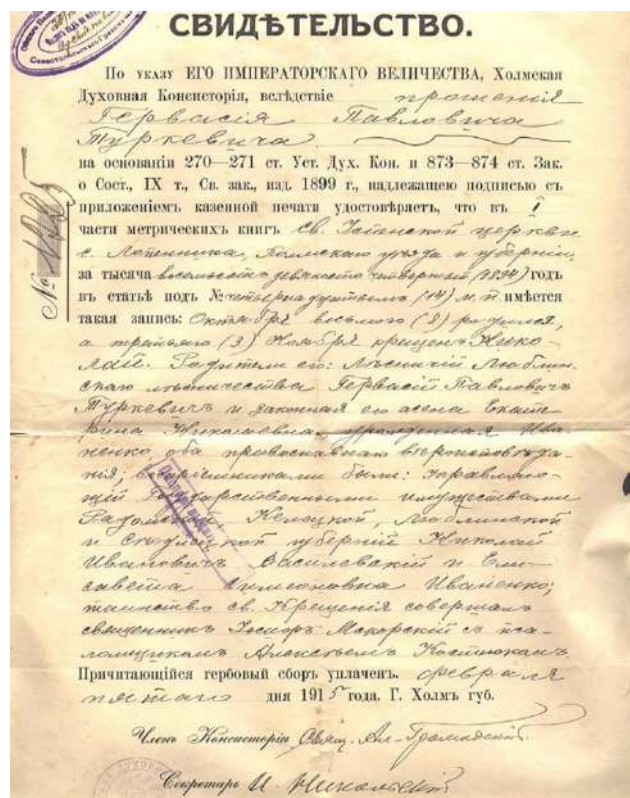 СВИДѢТЕЛЬСТВО.
По указу ЕГО ИМПЕРАТОРСКАГО ВЕЛИЧЕСТВА, Холмская
Духовная Консисторія, вслѣдствіе прошенія
Гервасія Павловича
Туркевича
на основаніи 270—271 ст. Уст. Дух. Кон. и 873—874 ст. Зак.
о Сост., IX т., Св. зак., изд. 1899 г., надлежащею подписью съ
приложеніемъ казенной печати удостовѣряетъ, что въ I
части метрическихъ книгъ Св. Успенской церкви
с. Лопенника, Холмскаго уѣзда и губерніи,
за тысяча восемьсотъ девяносто четвертый (1894) годъ
въ статьѣ подъ № четырнадцатымъ (14) м. п. имѣется
такая запись: Октября восьмого (8) родился,
а третьяго (3) Ноября крещенъ Нико-
лай. Родители его: Лѣсничій Люблин-
скаго лѣсничества Гервасій Павловичъ
Туркевичъ и законная его жена Екате-
рина Николаевна, урожденная Ива-
ненко, оба православнаго вѣроисповѣда-
нія; воспріемниками были: Управляю-
щій Государственными имуществами
Радомской, Келецкой, Люблинской
и Сѣдлецкой губерній Николай
Ивановичъ Василевскій и Ели-
савета Симеоновна Иваненко;
таинство св. Крещенія совершалъ
священникъ Макорскій съ пса-
ломщикомъ Алексѣемъ Костюкомъ.
Причитающійся гербовый сборъ уплаченъ. Февраля
пятаго дня 1915 года. Г. Холмъ губ.
Членъ Консисторіи Свящ. Ал. Громадскій.
Секретарь И. Никольскій
№